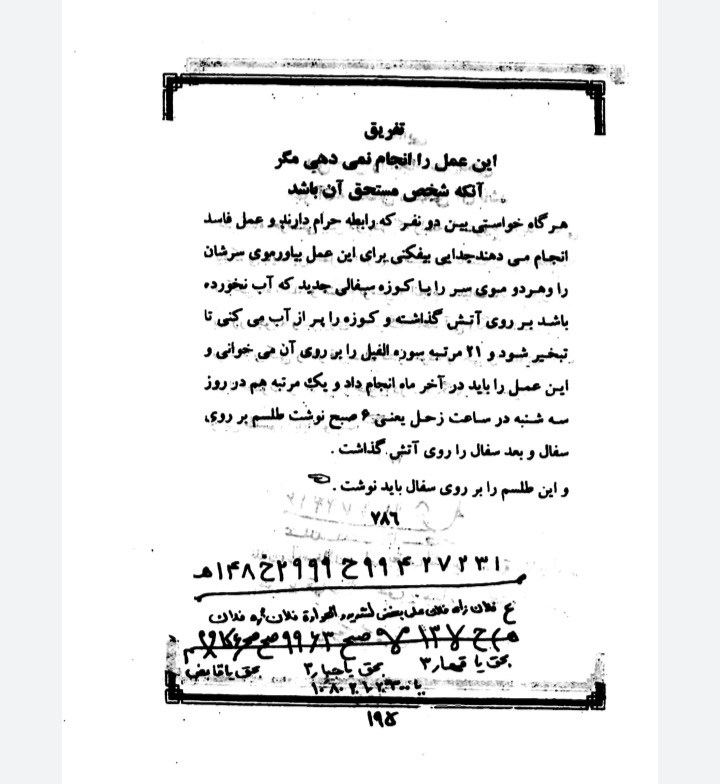 تفریق
این عمل را انجام نمی دهی مگر
آنکه شخص مستحق آن باشد
هر گاه خواستی بین دو نفر که رابطه حرام دارند و عمل فاسد
انجام می دهند جدایی بیفکنی برای این عمل بیاور موی سرشان
را و هر دو موی سر را با کوزه سفالی جدید که آب نخورده
باشد بر روی آتش گذاشته و کوزه را پر از آب می کنی تا
تبخیر شود و ۲۱ مرتبه سوره الفیل را بر روی آن می خوانی و
این عمل را باید در آخر ماه انجام داد و یک مرتبه هم در روز
سه شنبه در ساعت زحل یعنی ۶ صبح نوشت طلسم بر روی
سفال و بعد سفال را روی آتش گذاشت .
و این طلسم را بر روی سفال باید نوشت .
۷۸۶
فلان
بحق یا قهار ۳ بحق یا جبار ۳ بحق یا قابض